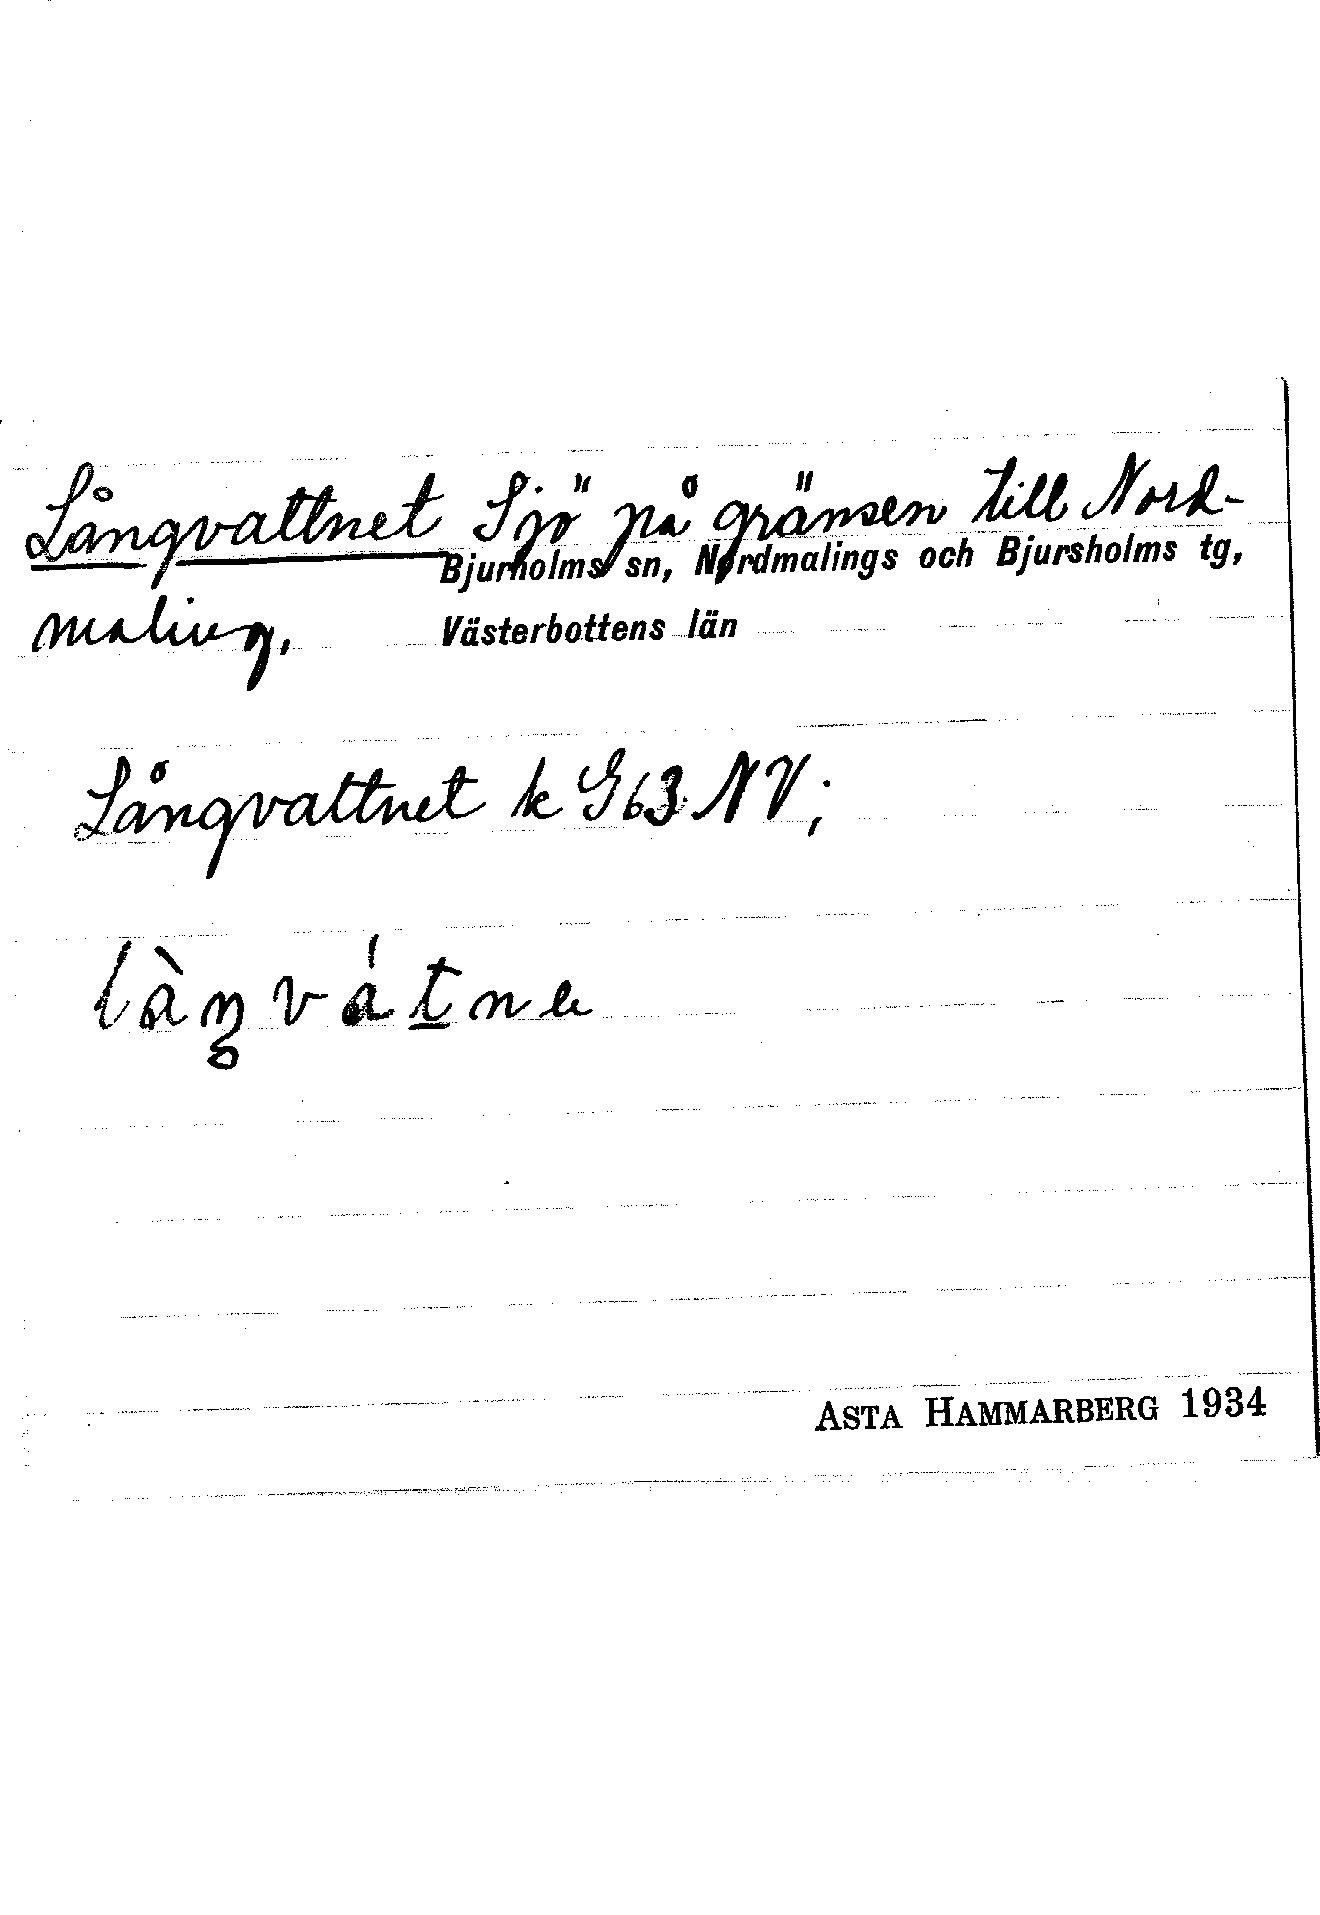 Långvattnet Sjö på gränsen till Nord-
Bjurholms sn, Nordmalings och Bjursholms tg,
maling.
Västerbottens län
Långvattnet k G63 NV;
làŋvátne
ASTA HAMMARBERG 1934